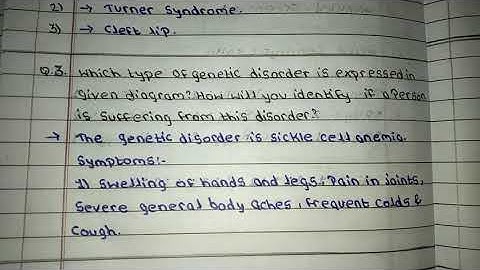 2) → Turner Syndrome.
3) → Cleft lip.
Q.3. Which type of genetic disorder is expressed in
given diagram? How will you identify if a Person
is suffering from this disorder?
→ The genetic disorder is sickle cell anemia.
Symptoms:-
1) swelling of hands and legs, Pain in joints,
Severe general body aches, frequent colds &
Cough.